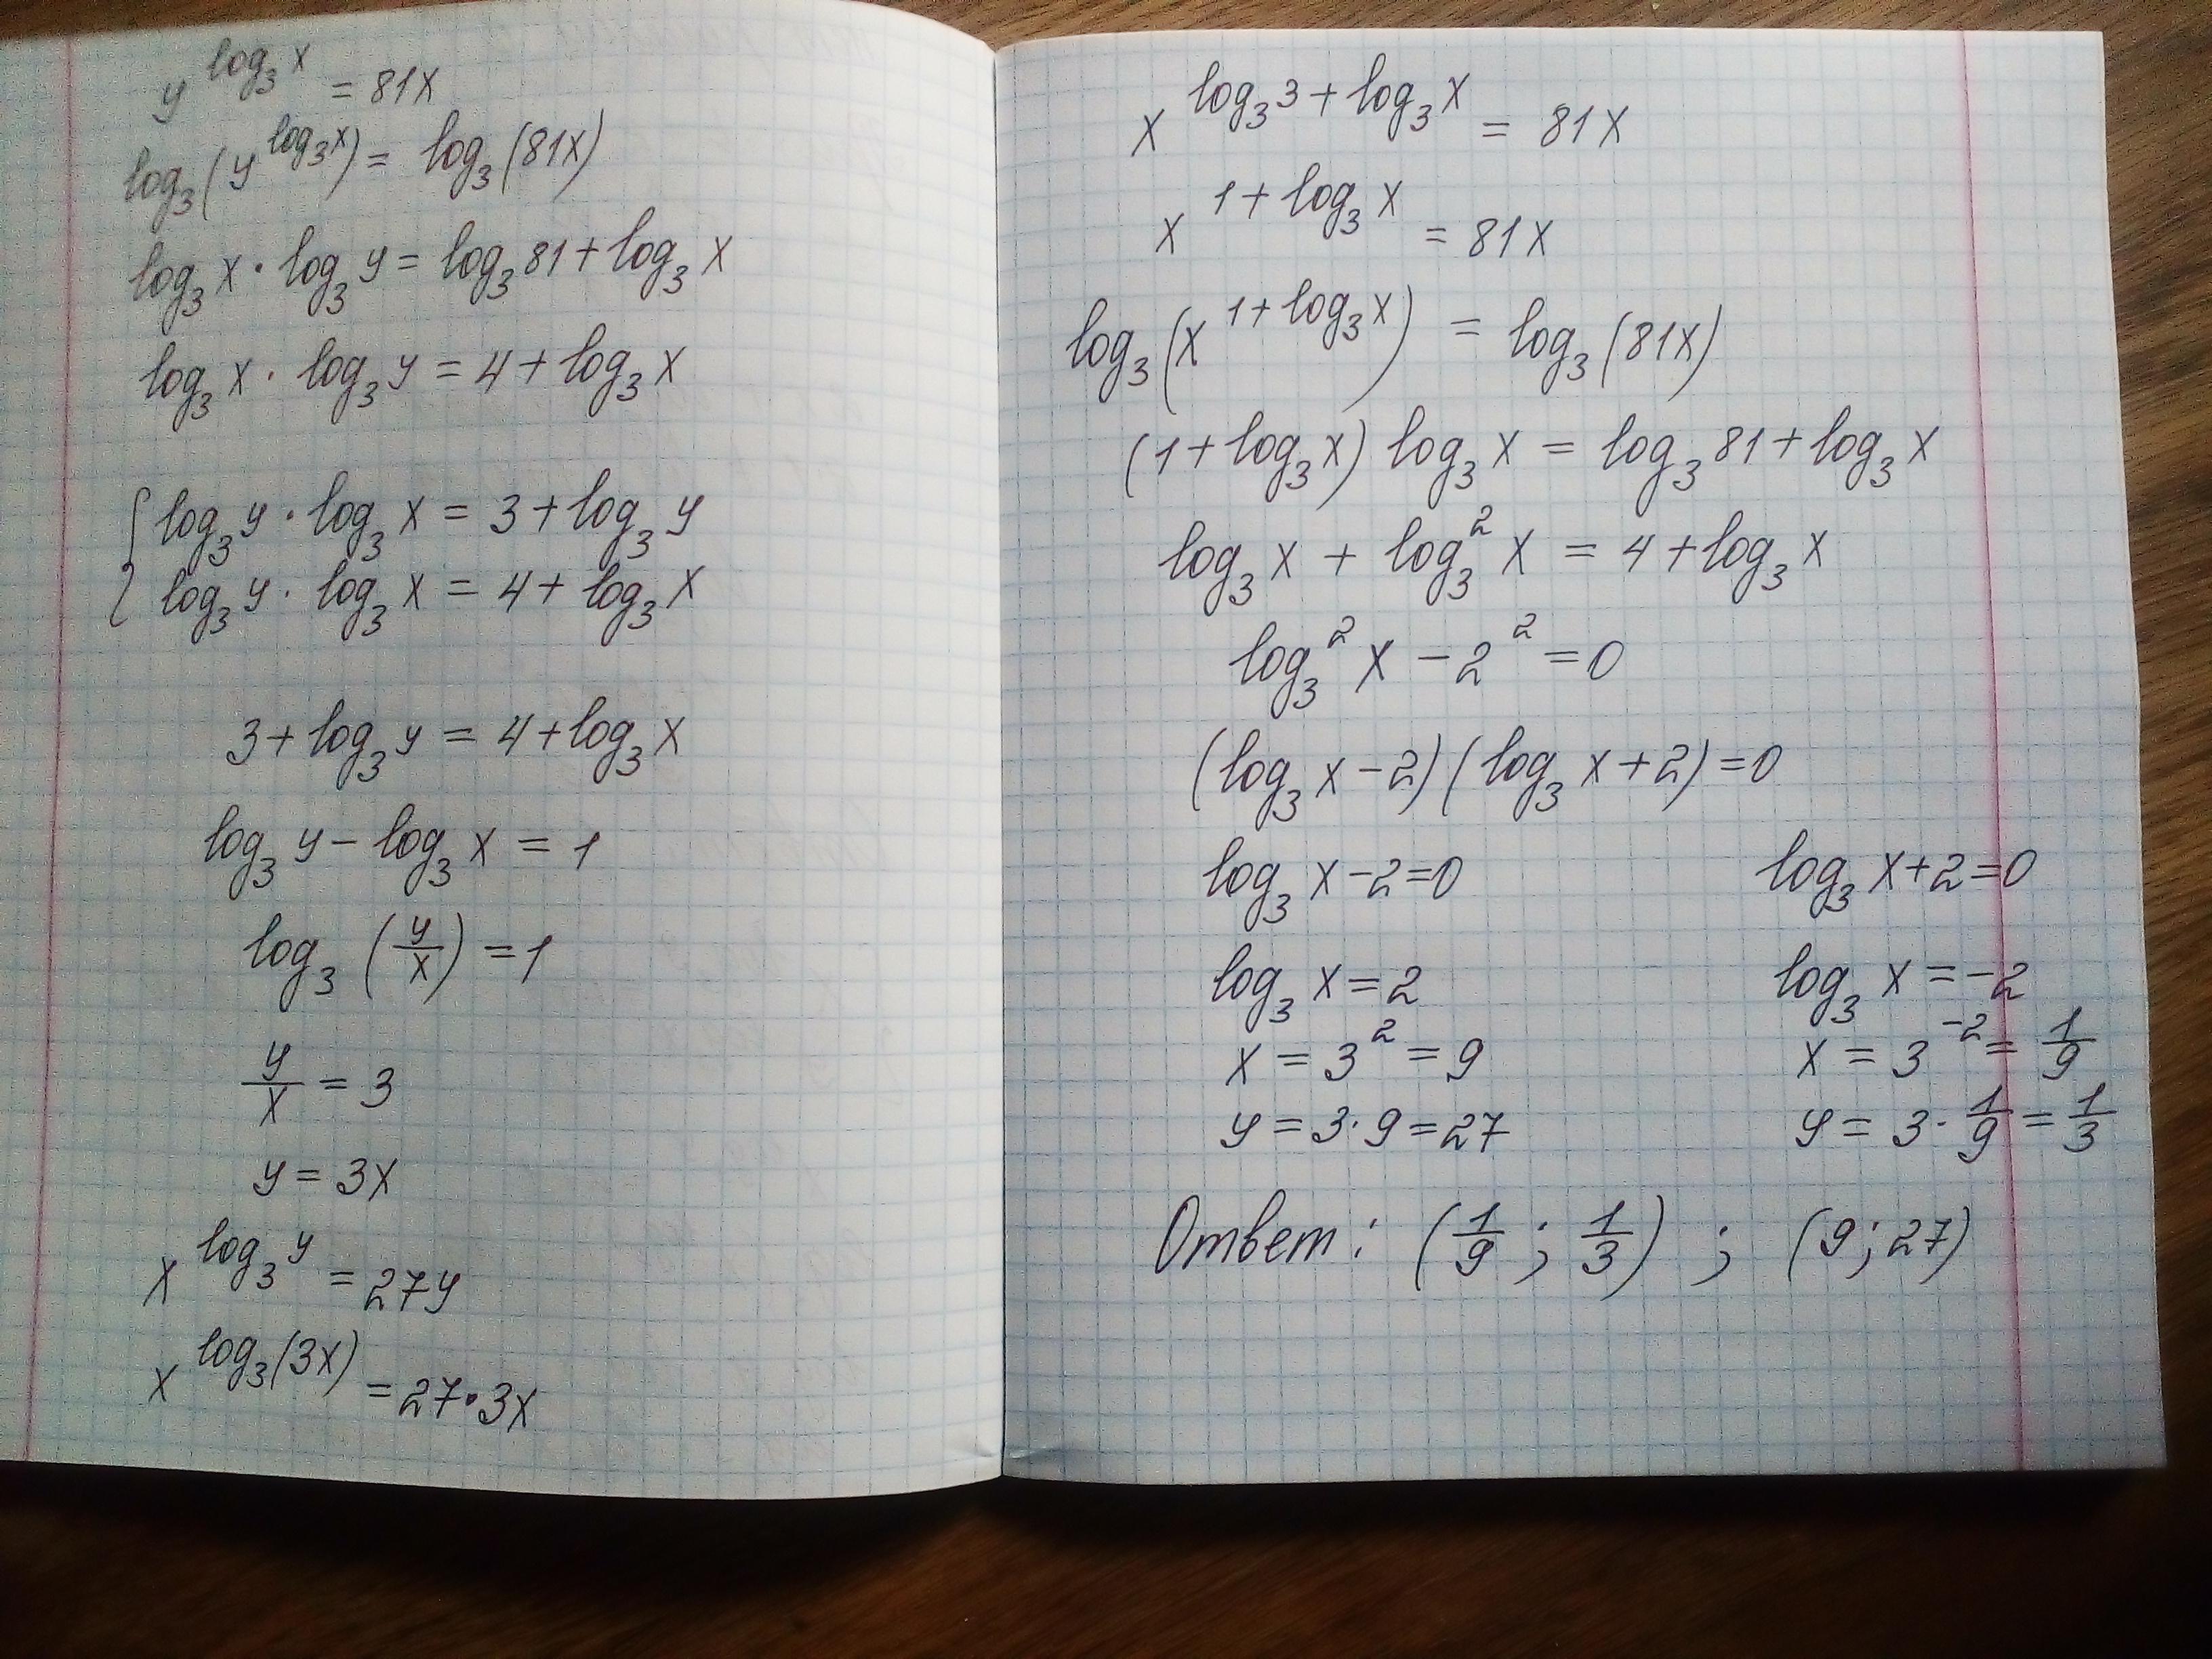 y^(log₃x) = 81x
log₃(y^(log₃x)) = log₃(81x)
log₃x · log₃y = log₃81 + log₃x
log₃x · log₃y = 4 + log₃x
{ log₃y · log₃x = 3 + log₃y
log₃y · log₃x = 4 + log₃x
3 + log₃y = 4 + log₃x
log₃y − log₃x = 1
log₃(y/x) = 1
y/x = 3
y = 3x
x^(log₃y) = 27y
x^(log₃(3x)) = 27·3x
x^(log₃3 + log₃x) = 81x
x^(1 + log₃x) = 81x
log₃(x^(1 + log₃x)) = log₃(81x)
(1 + log₃x) log₃x = log₃81 + log₃x
log₃x + log₃²x = 4 + log₃x
log₃²x − 2² = 0
(log₃x − 2)(log₃x + 2) = 0
log₃x − 2 = 0 log₃x + 2 = 0
log₃x = 2 log₃x = −2
x = 3² = 9 x = 3⁻² = 1/9
y = 3·9 = 27 y = 3·1/9 = 1/3
Ответ: (1/9; 1/3); (9; 27)